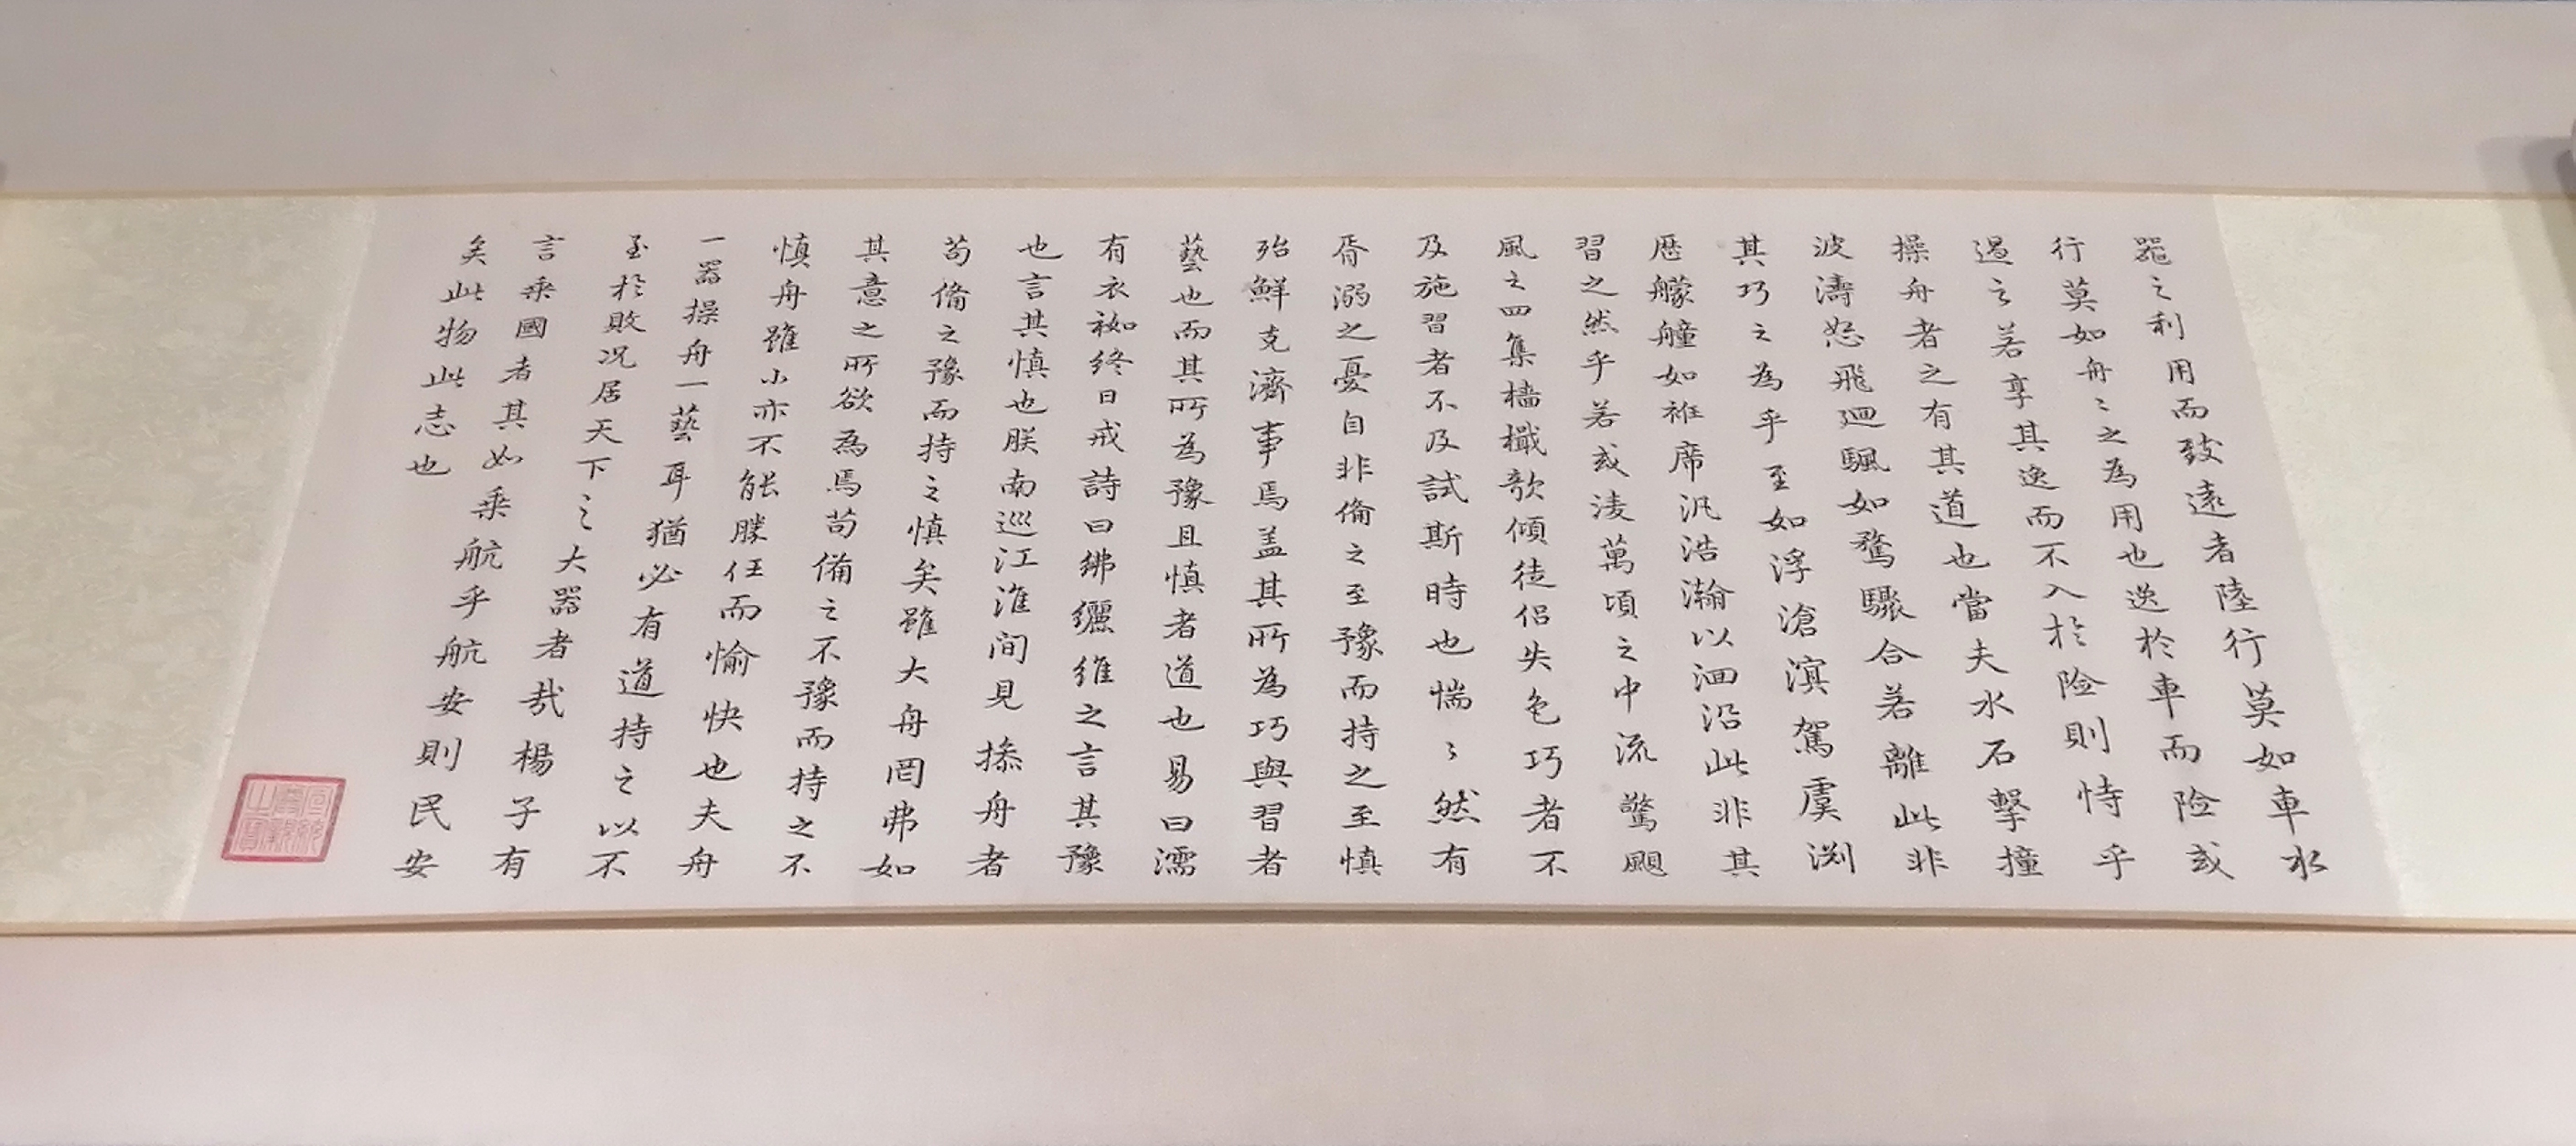 器之利用而致遠者陸行莫如車水
行莫如舟〻之為用也逸於車而险或
過之若享其逸而不入於险則恃乎
操舟者之有其道也當夫水石擊撞
波濤怒飛迴颿如騖驟合若離此非
其巧之為乎至如浮滄溟駕虞渊
歴艨艟如袵席汎浩瀚以洄沿此非其
習之然乎若或淩萬頃之中流驚颶
風之四集檣檝欹傾徒侣失色巧者不
及施習者不及試斯時也惴〻然有
胥溺之憂自非俻之至豫而持之至慎
殆鮮克濟事焉盖其所為巧與習者
藝也而其所為豫且慎者道也易曰濡
有衣袽終日戒詩曰紼纚維之言其豫
也言其慎也朕南巡江淮间見操舟者
苟俻之豫而持之慎矣雖大舟罔弗如
其意之所欲為焉苟俻之不豫而持之不
慎舟雖小亦不能勝任而愉快也夫舟
一器操舟一藝耳猶必有道持之以不
至於敗况居天下之大器者哉楊子有
言乘國者其如乘航乎航安則民安
矣此物此志也